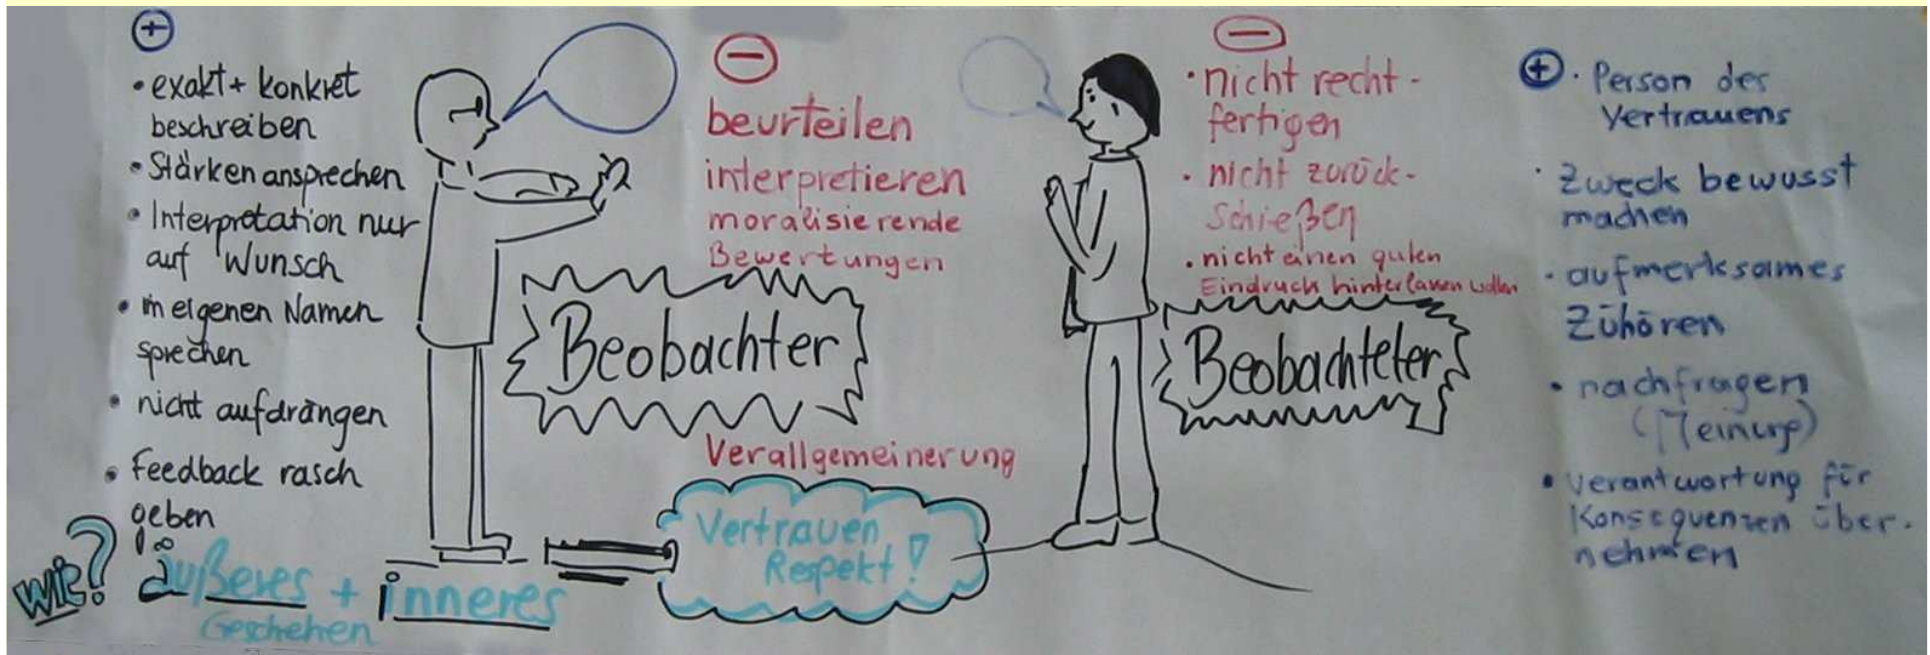 +
• exakt + konkret
beschreiben
• Stärken ansprechen
• Interpretation nur
auf Wunsch
• im eigenen Namen
sprechen
• nicht aufdrängen
• Feedback rasch
geben
wie?
äußeres + inneres
Geschehen
−
beurteilen
interpretieren
moralisierende
Bewertungen
Beobachter
Verallgemeinerung
Vertrauen
Respekt!
−
• nicht recht-
fertigen
• nicht zurück-
schießen
• nicht einen guten
Eindruck hinterlassen wollen
Beobachteter
+ • Person des
Vertrauens
• Zweck bewusst
machen
• aufmerksames
Zühören
• nachfragen
• Verantwortung für
Konsequenzen über-
nehmen